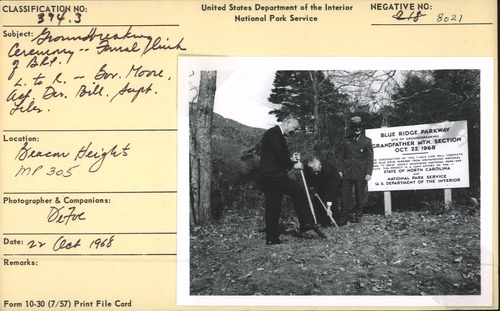 CLASSIFICATION NO:
394.3
United States Department of the Interior
National Park Service
NEGATIVE NO:
218 8021
Subject: Groundbreaking
Ceremony -- Final Link
of BRP.
L. to R. -- Gov. Moore,
Dir. Bill, Supt.
Liles.
Location:
Beacon Heights
MP 305
Photographer & Companions:
DeFoe
Date: 22 Oct 1968
Remarks:
Form 10-30 (7/57) Print File Card
BLUE RIDGE PARKWAY
SITE OF GROUNDBREAKING
GRANDFATHER MTN. SECTION
OCT 22, 1968
STATE OF NORTH CAROLINA
NATIONAL PARK SERVICE
U.S. DEPARTMENT OF THE INTERIOR